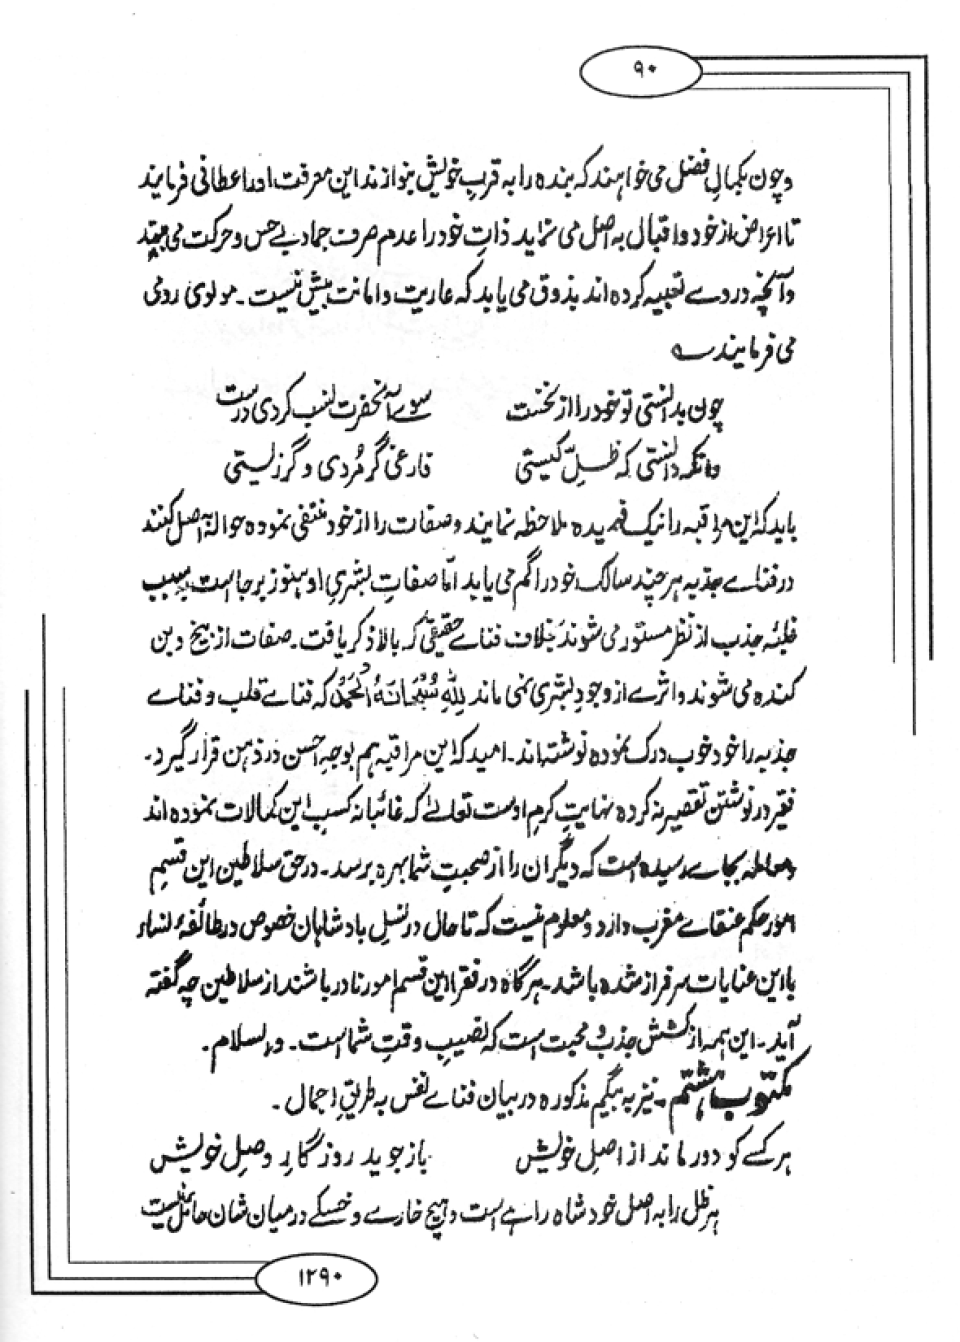 ۹۰
وچون بکمالِ فضل می خواہند کہ بندہ را بہ قربِ خویش بنوازند این معرفت او را عطا نی فرمایند
تا اعراض از خود و اقبال بہ اصل می نماید ذاتِ خود را عدم صرف جمادِ بے حس و حرکت می فہمد
و آنچہ در وے تعبیہ کردہ اند بذوق می یابد کہ عاریت و امانت بیش نیست۔ مولوی رومی
می فرمایند ؎
چون بدانستی تو خود را از نخست    سوے آنحضرت نسب کردی درست
وانکہ دانستی کہ ظلِّ کیستی    فارغی گر مُردی و گر زیستی
باید کہ این مراقبہ را نیک فہمیدہ ملاحظہ نمایند و صفات را از خود منتفی نمودہ حوالہ بہ اصل کنند
در فناے جذبہ ہر چند سالک خود را گم می یابد امّا صفاتِ بشریِ او ہنوز بر جا است بسبب
غلبۂ جذب از نظر مستور می شوند بخلاف فناے حقیقی کہ بالا ذکر یافت۔ صفات از بیخ و بن
کندہ می شوند و اثرے از وجودِ بشری نمی ماند لِلّٰہِ سُبْحَانَہُ الْحَمْدُ کہ فناے قلب و فناے
جذبہ را خود خوب درک نمودہ نوشتہ اند۔ امید کہ این مراقبہ ہم بوجہِ احسن در ذہن قرار گیرد۔
فقیر در نوشتن تقصیر نہ کردہ نہایتِ کرم اوست تعالےٰ کہ غائبانہ کسبِ این کمالات نمودہ اند
و معاملہ بجاے رسیدہ است کہ دیگران را از صحبتِ شما بہرہ برسد۔ در حق سلاطین این قسمِ
امور حکم عنقاے مغرب دارد و معلوم نیست کہ تا حال در نسلِ بادشاہان خصوص در طائفۂ نساء
با این عنایات سرفراز شدہ باشد۔ ہر گاہ در فقرا این قسم امور نادر باشند از سلاطین چہ گفتہ
آید۔ این ہمہ از کششِ جذب و محبت است کہ نصیبِ وقتِ شما است۔ والسلام۔
مکتوب ہشتم ۔ نیز بہ بیگم مذکورہ در بیان فناے نفس بہ طریقِ اجمال۔
ہر کسے کو دور ماند از اصلِ خویش    باز جوید روزگارِ وصلِ خویش
ہر ظل را بہ اصل خود شاہ راہے است و ہیچ خارے و خسکے درمیان شان حائل نیست
۱۲۹۰